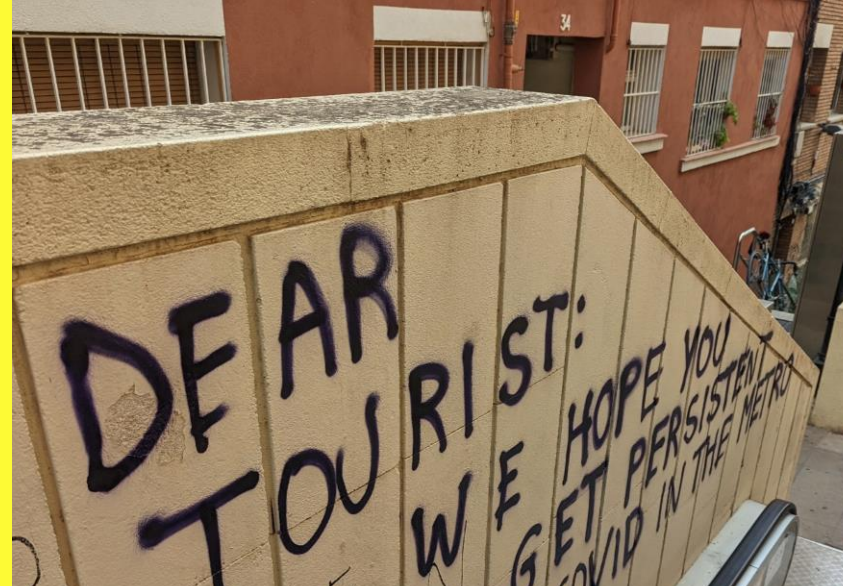 34
DEAR
TOURIST:
WE HOPE YOU
GET PERSISTENT
COVID IN THE METRO